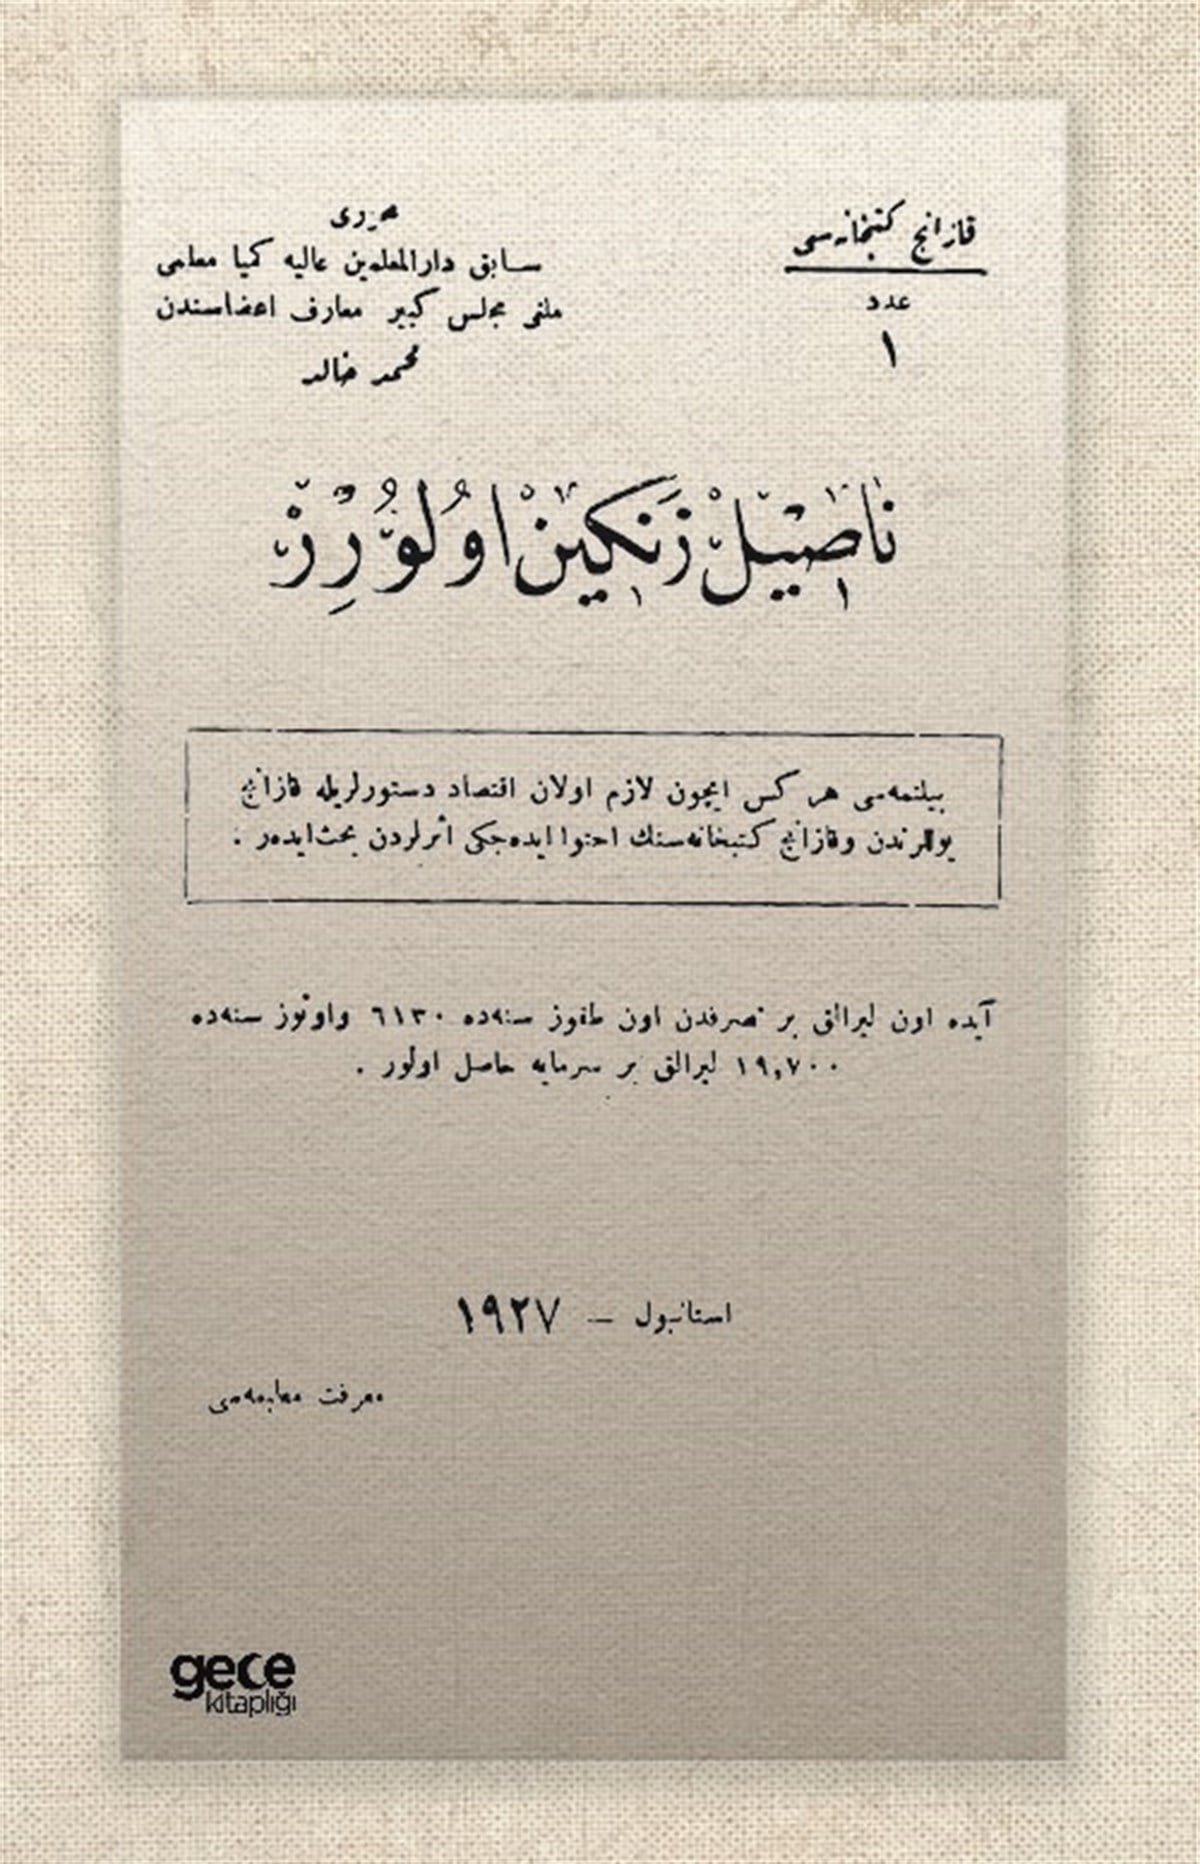 قازانج كتبخانه‌سی
عدد
١
محرری
سابق دارالمعلمین عالیه كمیا معلمی
ملغی مجلس كبیر معارف اعضاسندن
محمد خالد
ناصیل زنكین اولورز
بیلنمه‌سی هر كس ایچون لازم اولان اقتصاد دستورلریله قازانج
یوللرندن وقازانج كتبخانه‌سنك احتوا ایده‌جكی اثرلردن بحث ایده‌ر .
آیده اون لیرالق بر تصرفدن اون طقوز سنه‌ده ٦١٣٠ واوتوز سنه‌ده
١٩,٧٠٠ لیرالق بر سرمایه حاصل اولور .
استانبول – ١٩٢٧
معرفت مطبعه‌سی
gece
kitaplığı